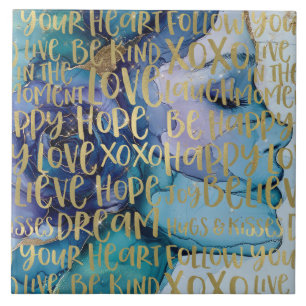 YOUR HEART FOLLOW YOU
LIVE BE KIND XOXO LIVE
IN THE MOMENT LOVE LAUGH MOME
PPY HOPE BE HAPPY
Y LOVE XOXO HAPPY LO
LIEVE HOPE JOY BELIEV
ISSES DREAM HUGS & KISSES DREA
YOUR HEART FOLLOW YOU
LIVE BE KIND XOXO LIVE